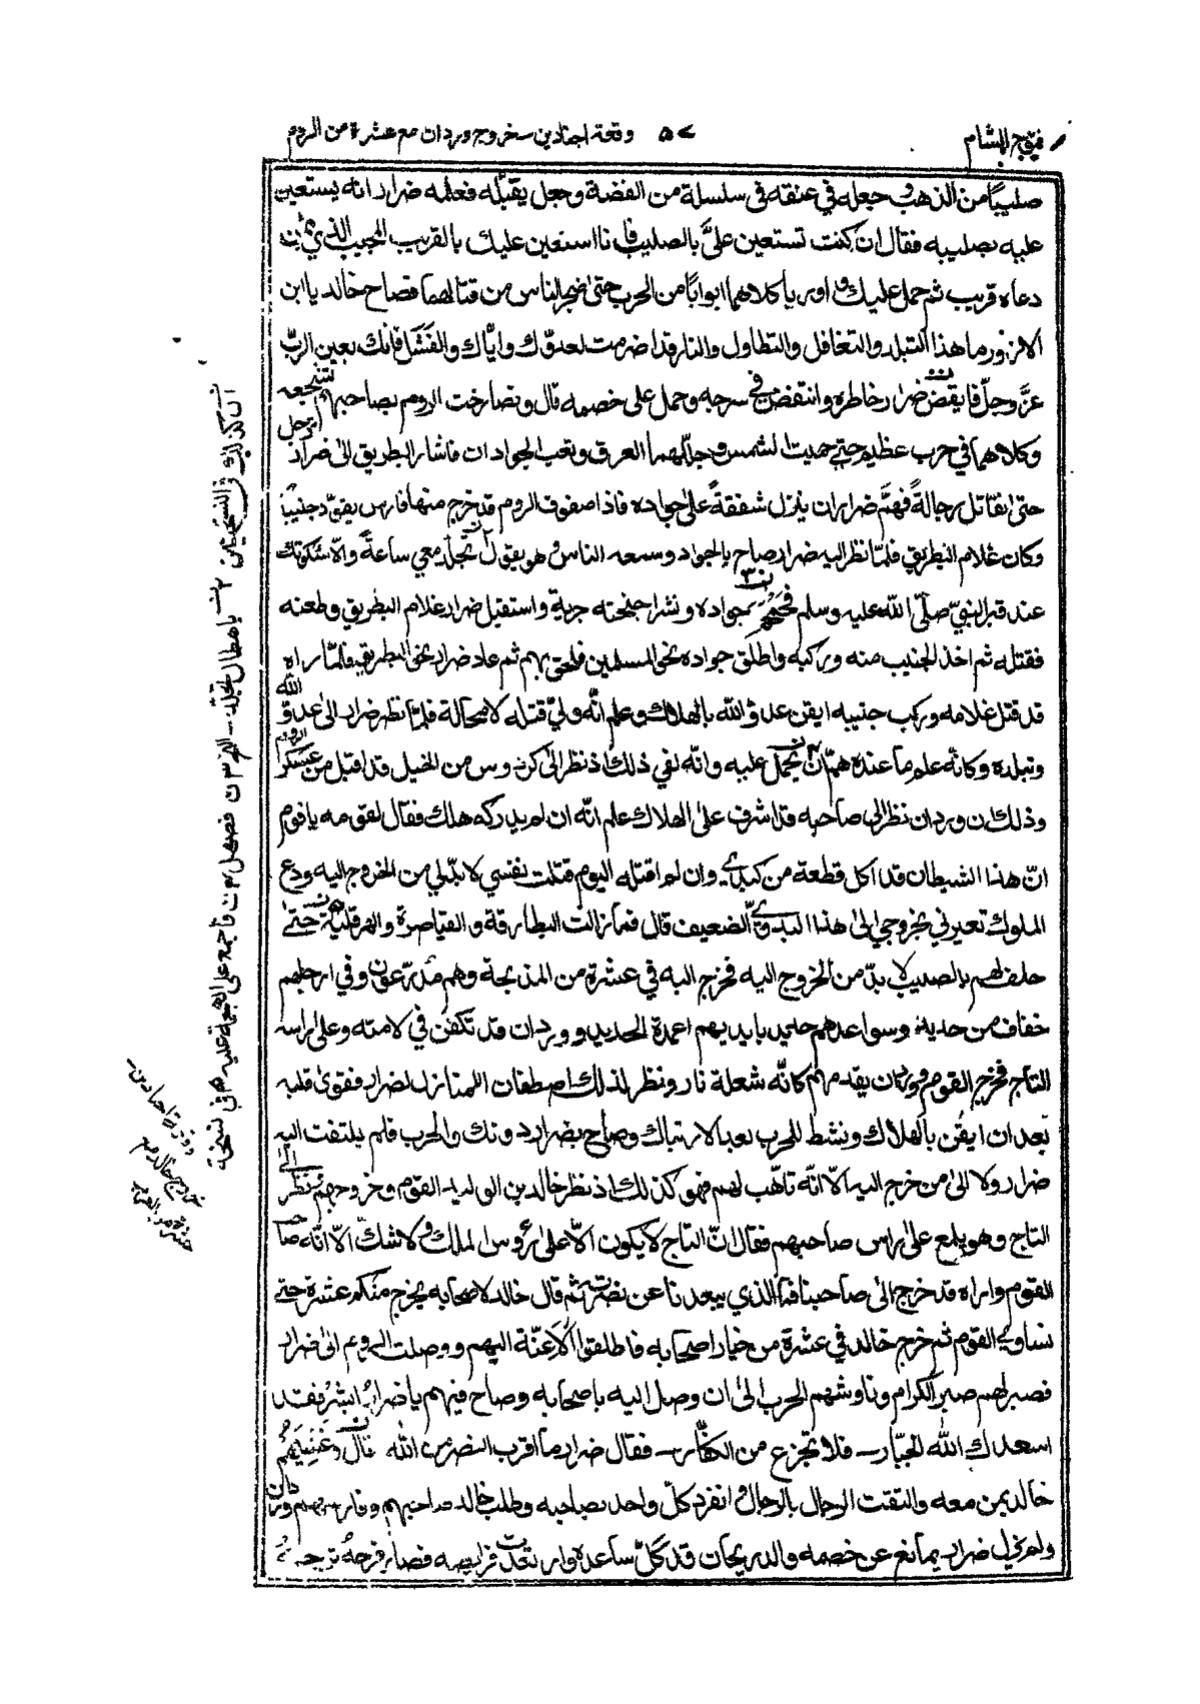 فتوح الشام
٥٧
وقعة اجنادين خروج وردان مع عشرة من الروم
صليبًا من الذهب وجعله في عنقه في سلسلة من الفضة وجعل يقبّله فعلمه ضرار انه يستعين
عليه بصليبه فقال ان كنت تستعين عليّ بالصليب فانا استعين عليك بالقريب المجيب الذي من
دعاه قريب ثم حمل عليه واوريا كلاهما ابوابًا من الحرب حتى ضجر الناس من قتالهما فصاح خالد يا ابن
الازور ما هذا التبلد والتغافل والتطاول والنار قد اضرمت لعدوّك وايّاك والفشل فانك بعين الربّ
عزّ وجلّ فايقض ضرار خاطره وانتفض في سرجه وحمل على خصمه قال وتصارخت الروم بصاحبها تشجعه
وكلاهما في حرب عظيم حتى حميت الشمس وجلّلهما العرق وتعب الجوادان فاشار البطريق الى ضرار ترجل
حتى نقاتل رجالةً فهمّ ضرار ان ينزل شفقةً على جواده فاذا صفوف الروم قد خرج منها فارس يقود جنيبًا
وكان غلام البطريق فلمّا نظر اليه ضرار صاح بالجواد وسمعه الناس وهو يقول تجلّد معي ساعةً والا شكوتك
عند قبر النبيّ صلّى الله عليه وسلم فحمحم جواده ونشر اجنحته جرية واستقبل ضرار غلام البطريق وطعنه
فقتله ثم اخذ الجنيب منه وركبه واطلق جواده نحو المسلمين فلحق بهم ثم عاد ضرار نحو البطريق فلمّا راه
قد قتل غلامه وركب جنيبه ايقن عدوّ الله بالهلاك وعلم انّه وليّ قتله لا محالة فلمّا نظر ضرار الى عدوّ الله
وتبلده وكانه علم ما عنده همّ ان يحمل عليه وانّه لفي ذلك اذ نظر الى كردوس من الخيل قد اقبل من عسكر الروم
وذلك ان وردان نظر الى صاحبه قد اشرف على الهلاك علم انّه ان لم يدركه هلك فقال لقومه يا قوم
انّ هذا الشيطان قد اكل قطعة من كبدي وان لم اقتله اليوم قتلت نفسي لا بدّ لي من الخروج اليه ودع
الملوك تعيرني بخروجي الى هذا البدويّ الضعيف قال فما زالت البطارقة والقياصرة والهرقلية حتى
حلف لهم بالصليب لا بدّ من الخروج اليه فخرج اليه في عشرة من المذبحة وهم مدرعون وفي ارجلهم
خفاف من حديد وسواعدهم حديد بايديهم اعمدة الحديد ووردان قد تكفن في لامته وعلى راسه
التاج فخرج القوم ووردان يقدمهم كانّه شعلة نار ونظر لذلك اصطفان المنازل لضرار فقوى قلبه
بعد ان ايقن بالهلاك ونشط للحرب بعد الارتباك وصاح بضرار دونك والحرب فلم يلتفت اليه
ضرار ولا الى من خرج اليه الّا انّه تاهّب لهم فهو كذلك اذ نظر خالد بن الوليد القوم وخروجهم نظر الى
التاج وهو يلمع على راس صاحبهم فقال انّ التاج لا يكون الّا على رؤوس الملك ولا شكّ الّا انّه صاحب
القوم واراه قد خرج الى صاحبنا فما الذي يبعدنا عن نصرته ثم قال خالد لاصحابه يخرج منكم عشرة حتى
نساوي القوم ثم خرج خالد في عشرة من خيار اصحابه فاطلقوا الاعنّة اليهم ووصلت الروم الى ضرار
فصبر لهم صبر الكرام وناوشهم الحرب الى ان وصل اليه باصحابه وصاح فيهم يا ضرار ابشر فقد
اسعدك الله الجبّار فلا تجزع من الكفّار فقال ضرار ما اقرب النصر من الله قال
خالد بمن معه والتقت الرجال بالرجال وانفرد كلّ واحد بصاحبه وطلب خالد صاحبهم وفارسهم وردان
ولم يزل ضرار يمانع عن خصمه والدريحان قد كلّ ساعده وارتعدت فرايصه فصار فرحه ترحه